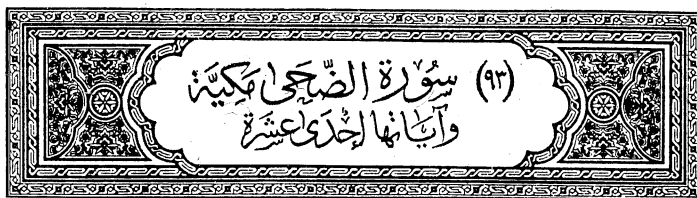 (٩٣) سُورَة الضّحَىٰ مَكيَّة
وَآيَانهَا إحْدَىٰ عَشرَة